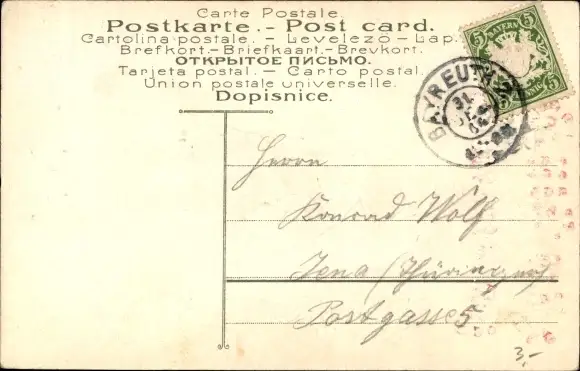 Carte Postale.
Postkarte. - Post card.
Cartolina postale. - Levelező - Lap.
Brefkort.- Briefkaart.- Brevkort.
ОТКРЫТОЕ ПИСЬМО.
Tarjeta postal. - Carto postal
Union postale universelle.
Dopisnice.
5 BAYERN 5
BAYREUTH
31
Herrn
Konrad Wolf
Jena (Thüringen).
Postgasse 5.
3,-